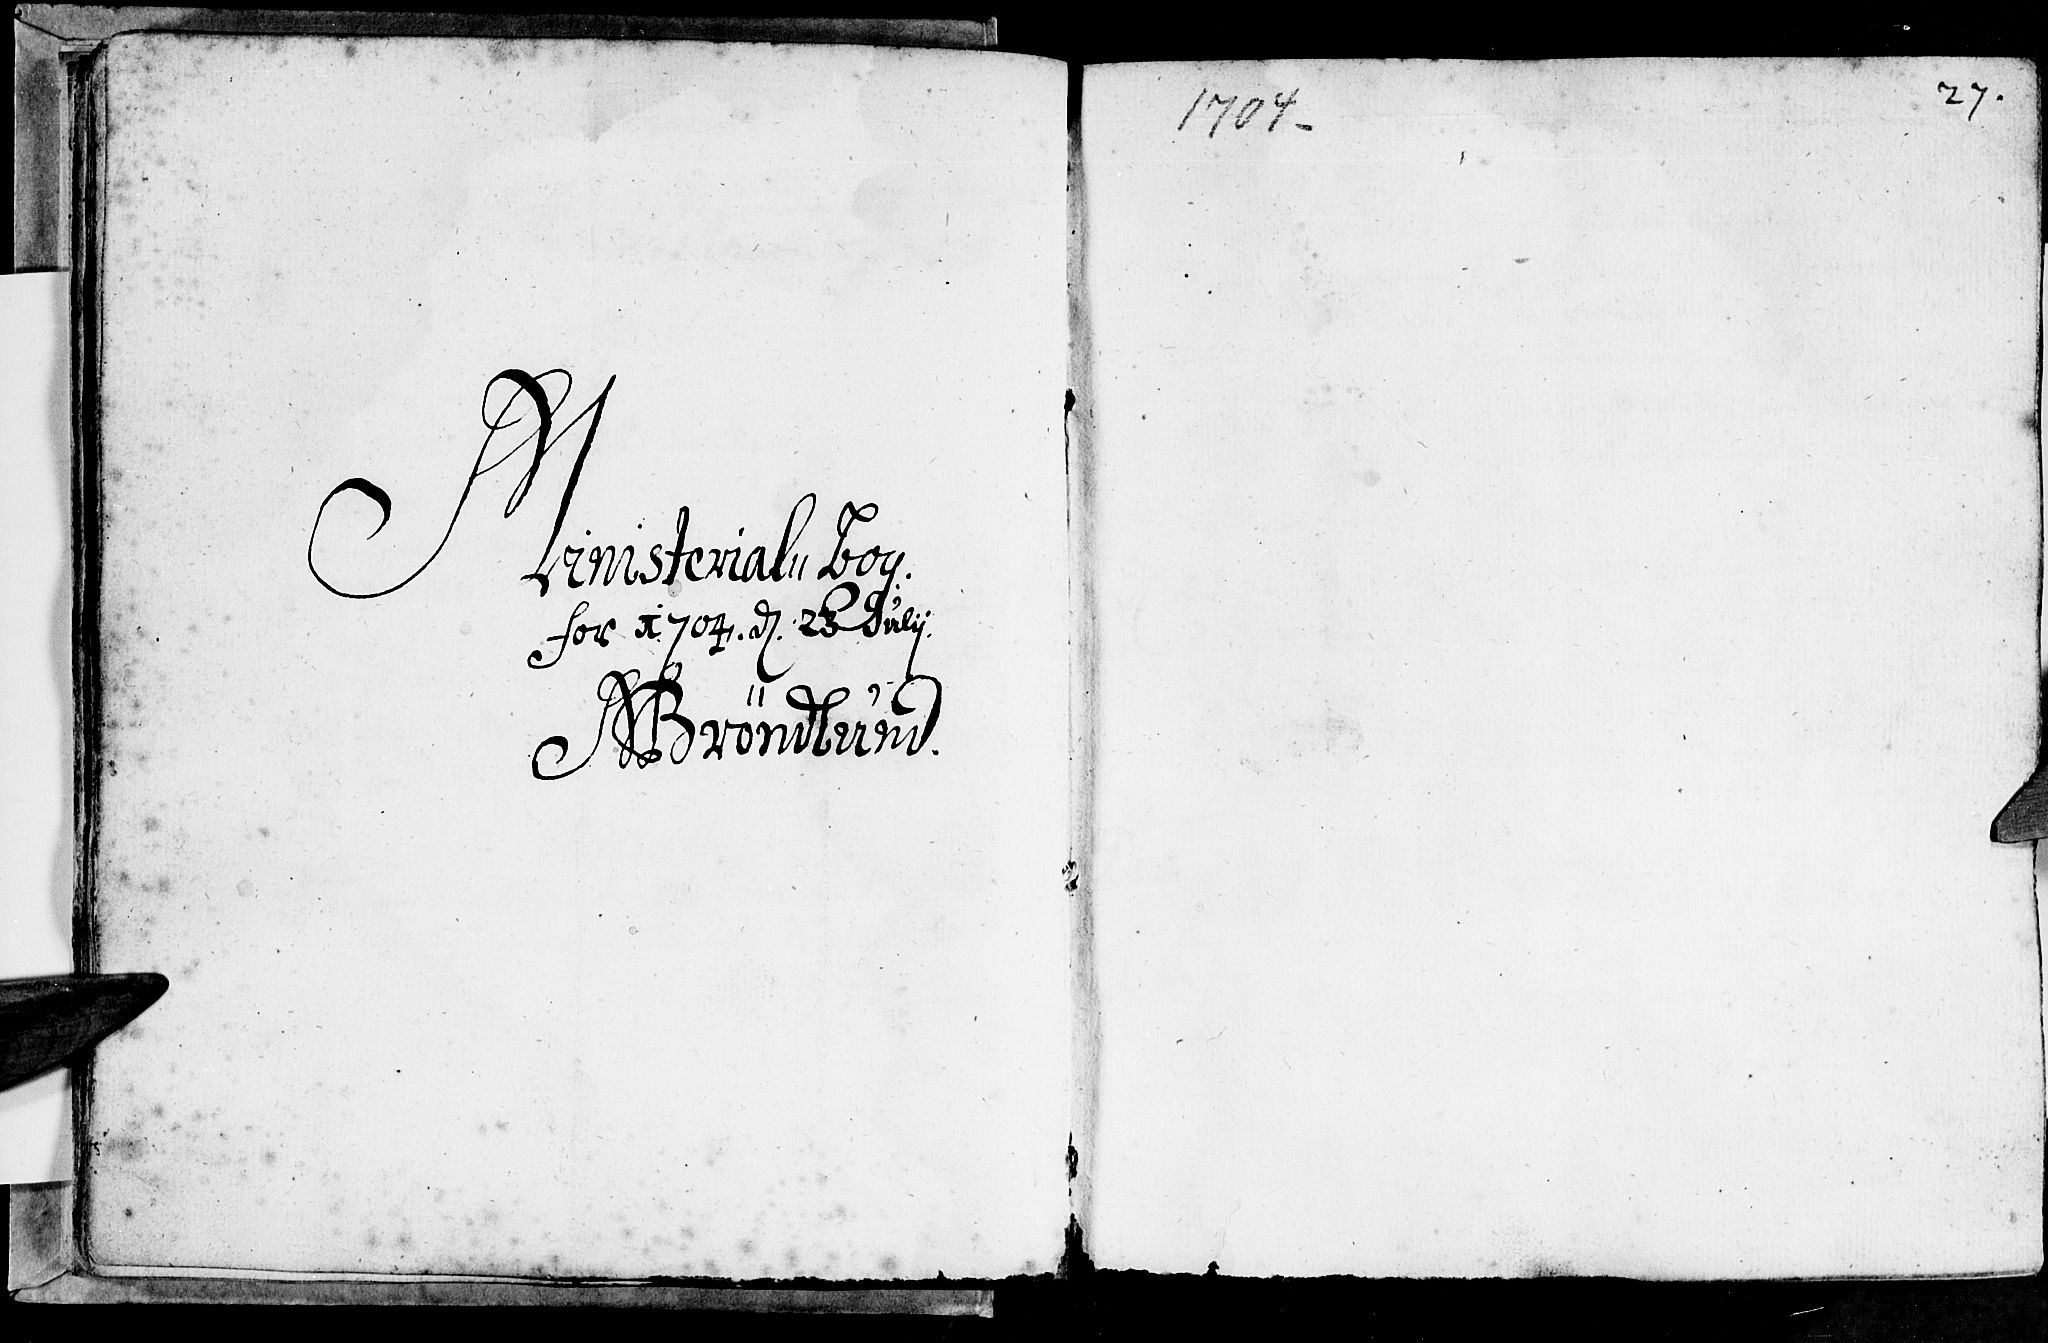 Ministerial„ Bog.
for 1704. d. 23 Julij.
MBröndlund.
1704
27.